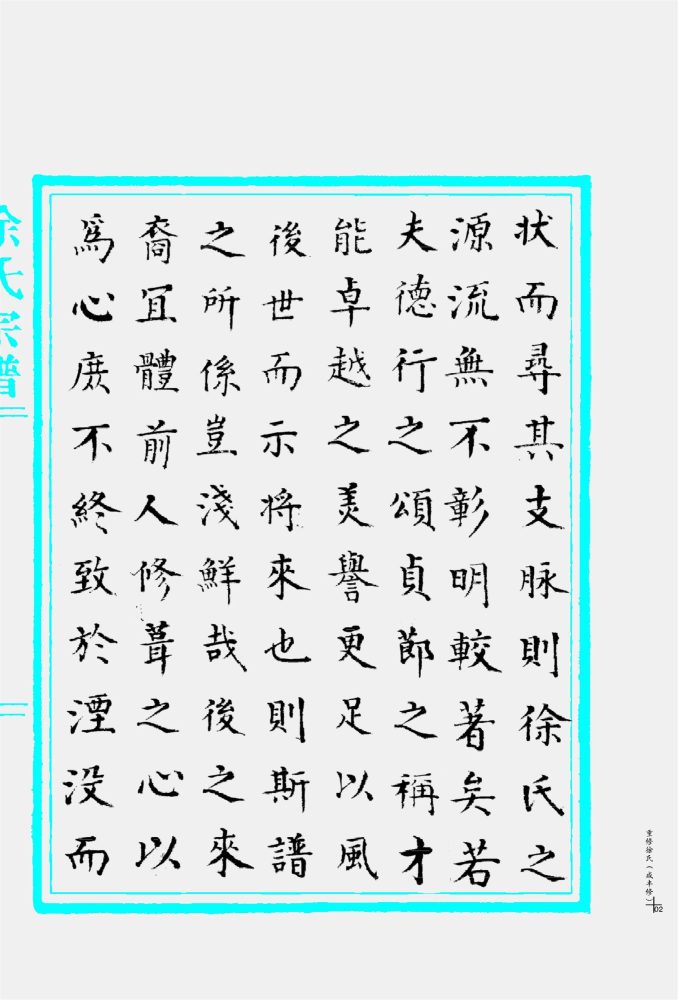 状而尋其支脉則徐氏之
源流無不彰明較著矣若
夫德行之頌貞節之稱才
能卓越之美譽更足以風
後世而示将來也則斯譜
之所係豈淺鮮哉後之來
裔宜體前人修葺之心以
爲心庶不終致於湮没而
徐氏宗譜
重修徐氏（咸丰修）
02